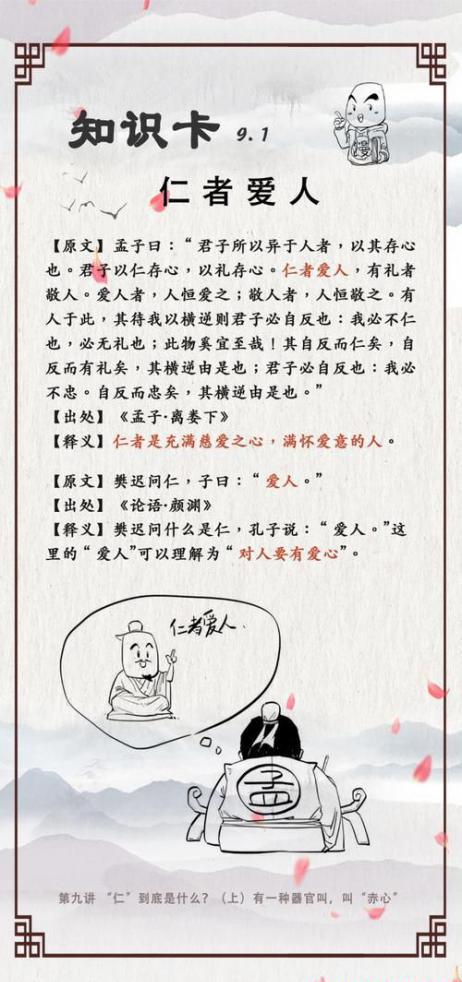 知识卡 9.1
仁者爱人
【原文】孟子曰：“君子所以异于人者，以其存心
也。君子以仁存心，以礼存心。仁者爱人，有礼者
敬人。爱人者，人恒爱之；敬人者，人恒敬之。有
人于此，其待我以横逆则君子必自反也：我必不仁
也，必无礼也；此物奚宜至哉！其自反而仁矣，自
反而有礼矣，其横逆由是也；君子必自反也：我必
不忠。自反而忠矣，其横逆由是也。”
【出处】《孟子·离娄下》
【释义】仁者是充满慈爱之心，满怀爱意的人。
【原文】樊迟问仁，子曰：“爱人。”
【出处】《论语·颜渊》
【释义】樊迟问什么是仁，孔子说：“爱人。”这
里的“爱人”可以理解为“对人要有爱心”。
仁者爱人.
孟
第九讲 “仁”到底是什么？（上）有一种器官叫，叫“赤心”